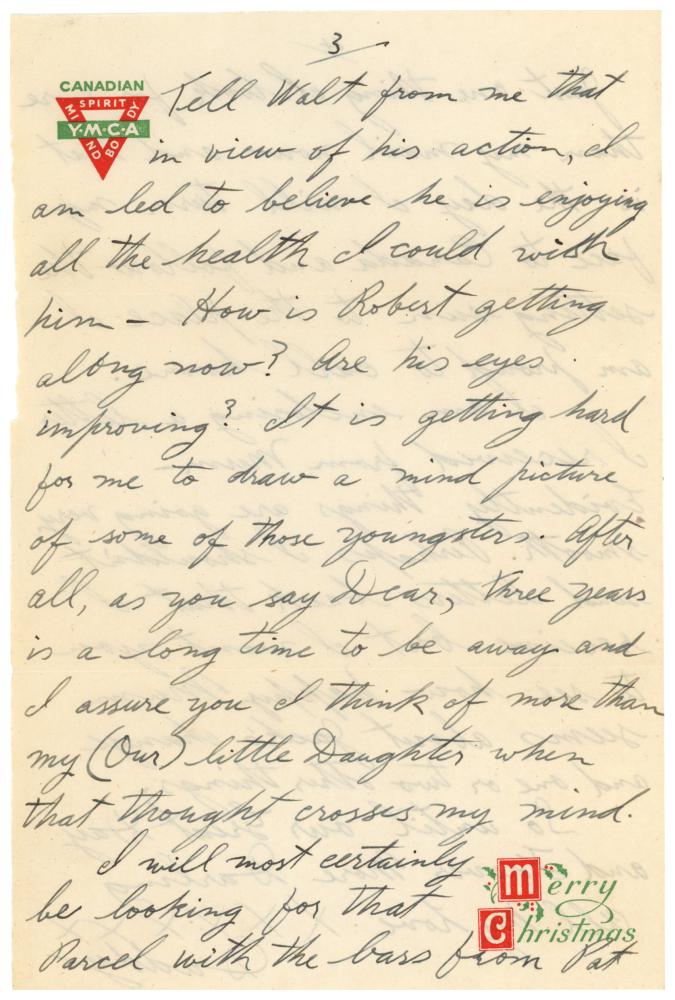 3
CANADIAN
SPIRIT
MIND
Y·M·C·A
BODY
Tell Walt from me that
in view of his action, I
am led to believe he is enjoying
all the health I could wish
him – How is Robert getting
along now? Are his eyes
improving? It is getting hard
for me to draw a mind picture
of some of those youngsters. After
all, as you say Dear, three years
is a long time to be away and
I assure you I think of more than
my (Our) little Daughter when
that thought crosses my mind.
I will most certainly
be looking for that
Parcel with the bars from Pat
Merry
Christmas